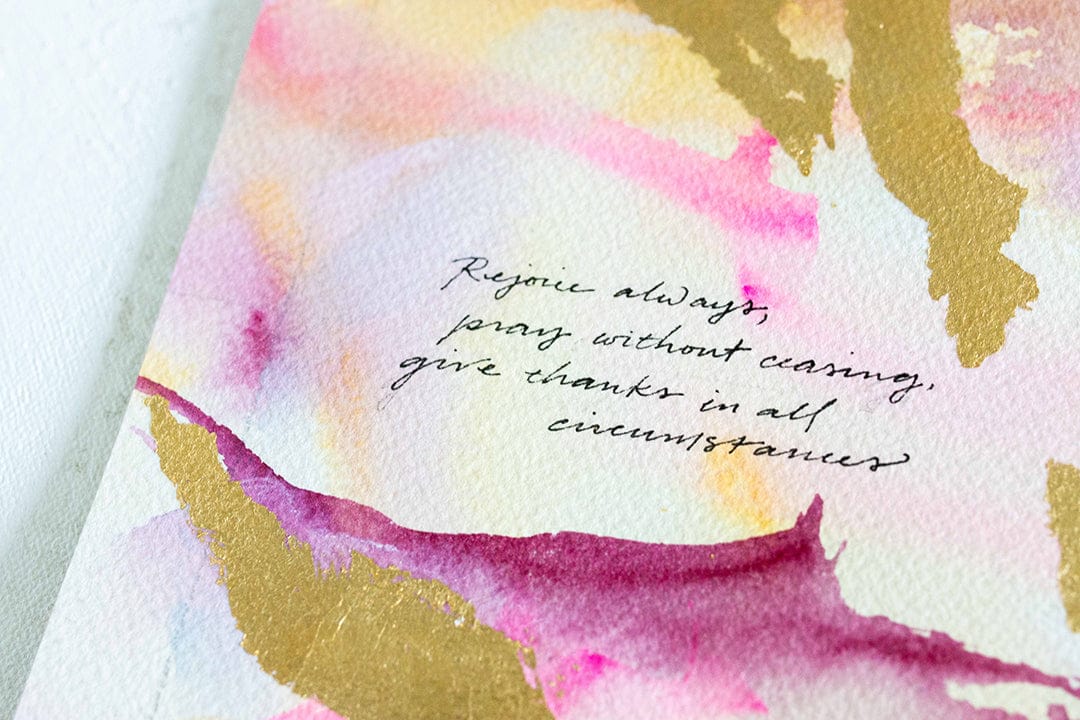 Rejoice always,
pray without ceasing,
give thanks in all
circumstances